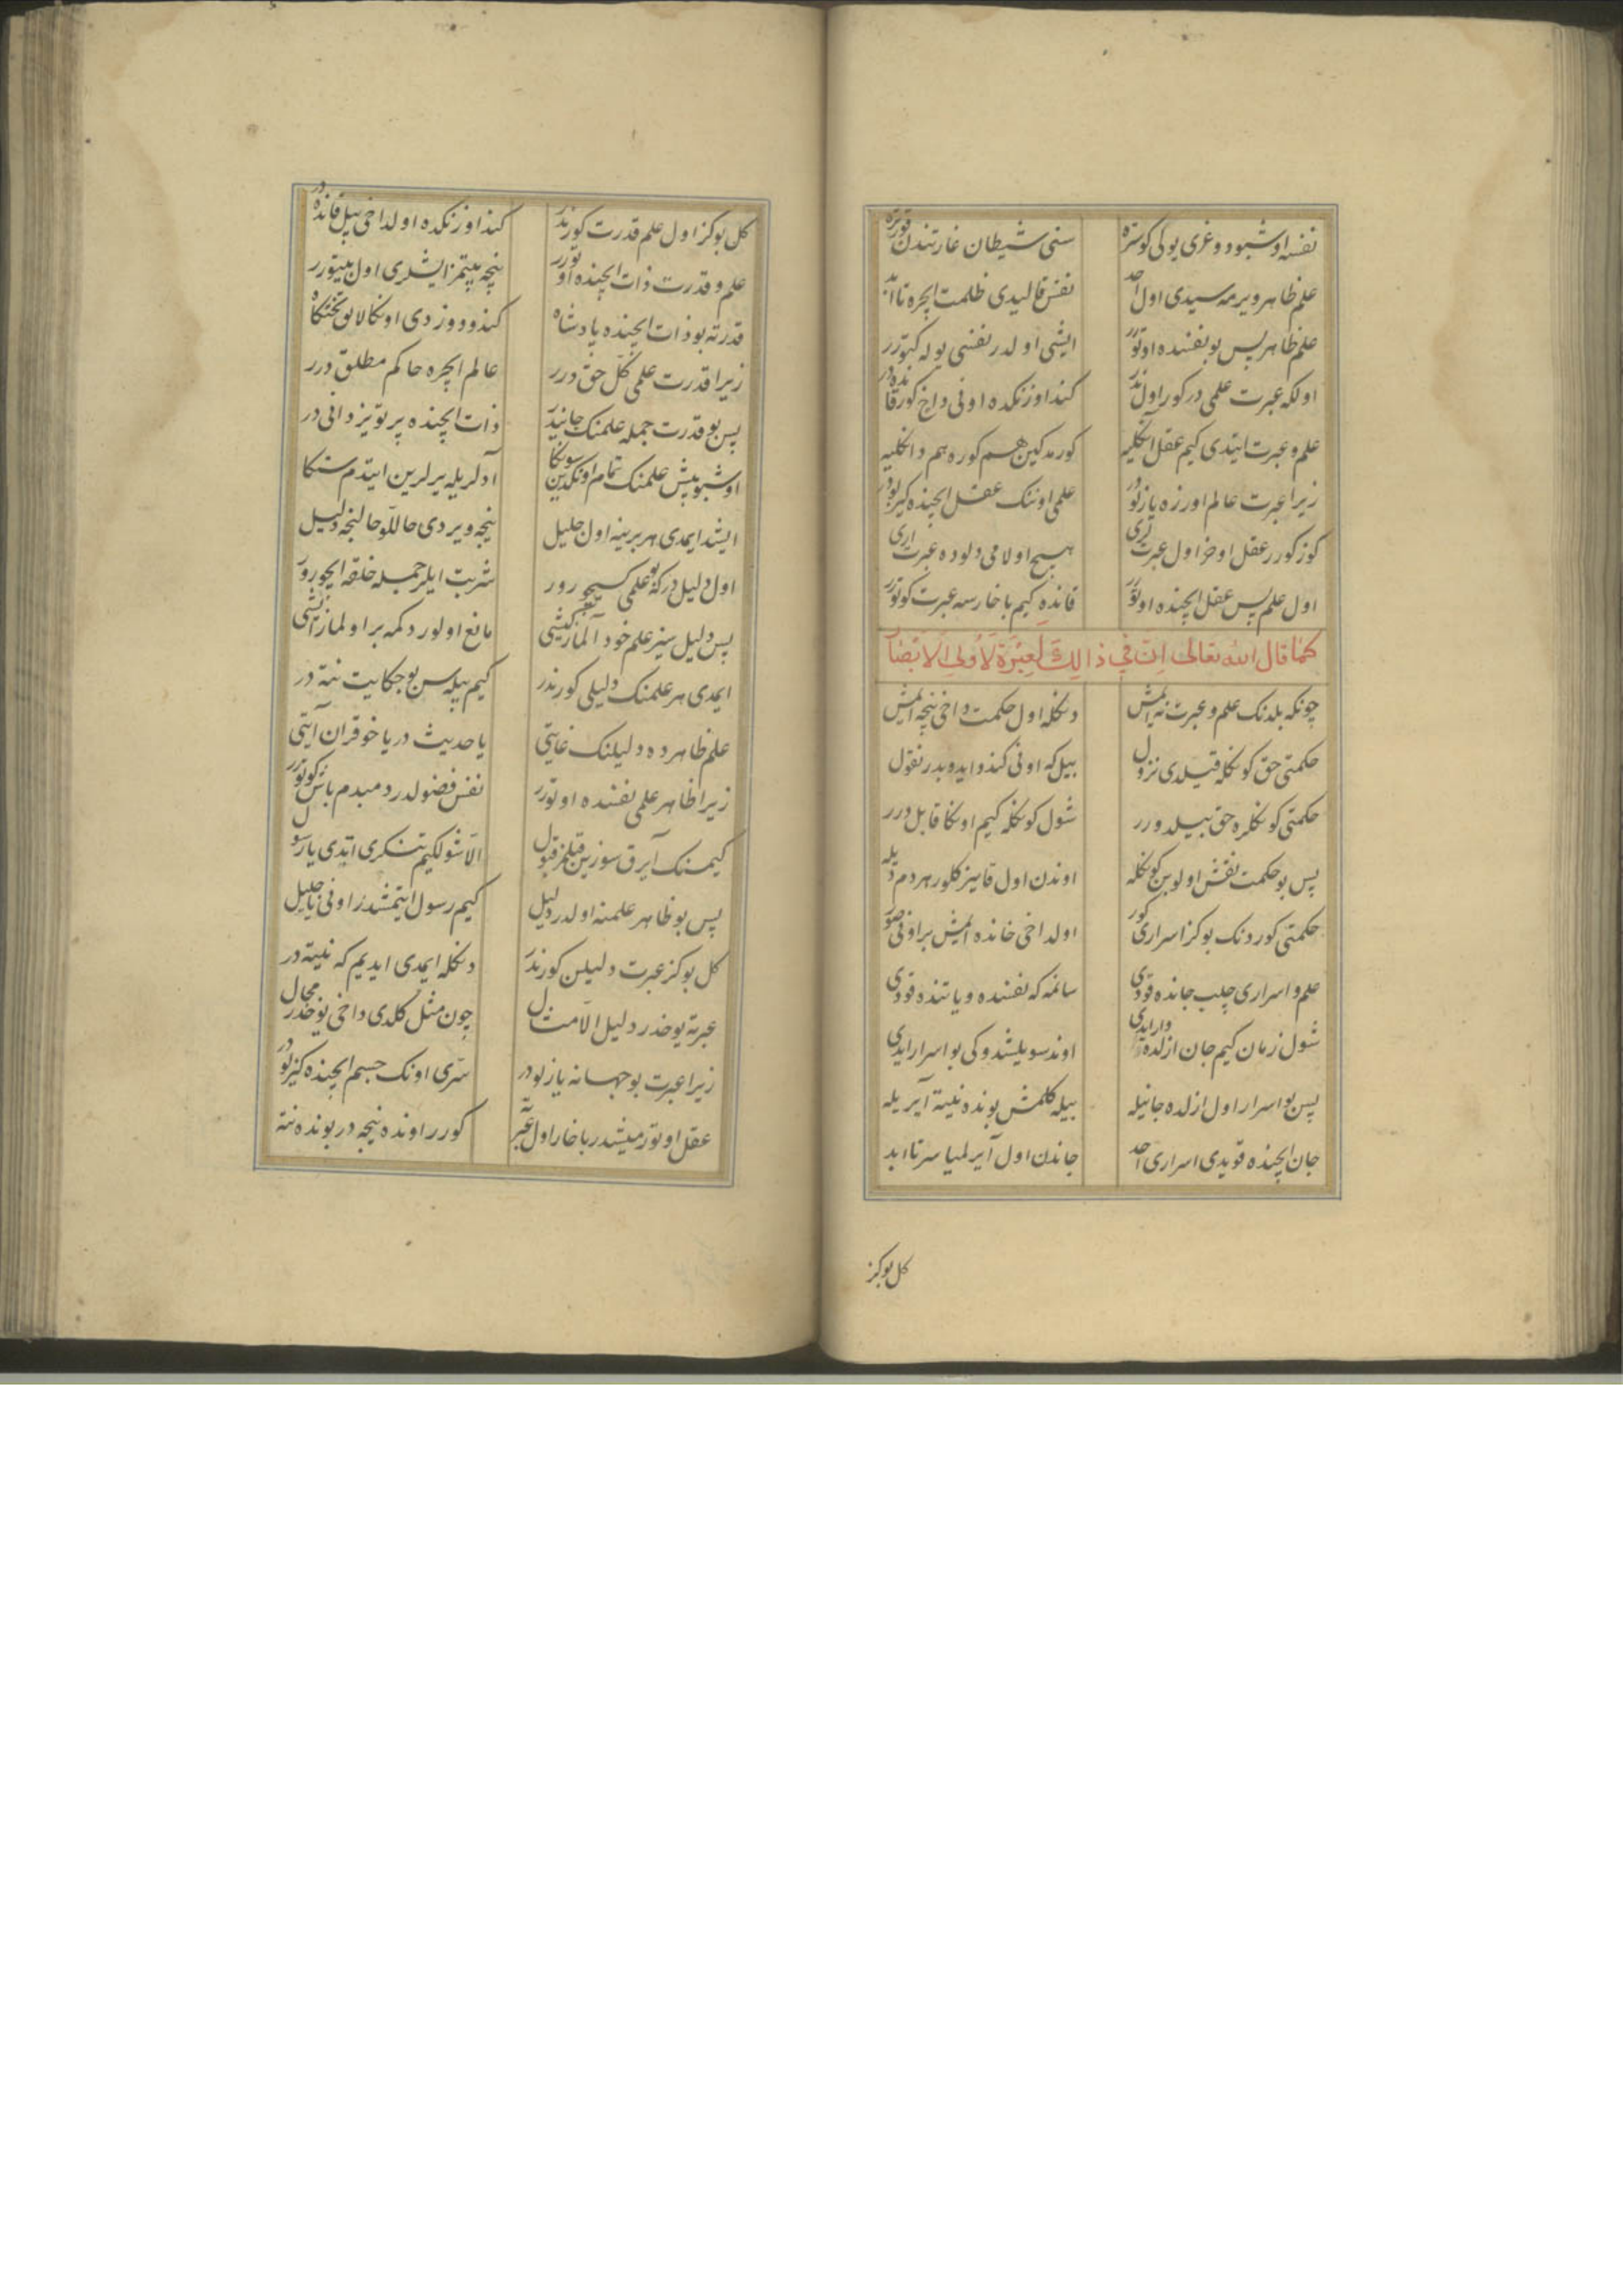 نفسنه اوشبو دوغری یولی کوستره سنی شیطان غارتندن قورتره
علم ظاهر ویرمه سیدی اول احد نفس قالیدی ظلمت ایچره تا ابد
علم ظاهر پس بو نفسنده اوتورر ایشی اولدر نفسنی یوله کتورر
اولکه عبرت علمی در کور اول ندر کندو اوزنکده اونی داخ کور قانده در
علم و عبرت ایتدی کیم عقل آنکلیه کورمدکین هم کوره هم دانکلیه
زیرا عبرت عالم اوزره یازلودر علمی اونک عقل ایچنده کیزلودر
کوز کورر عقل اوخر اول عبرتی هیچ اولامی دلوده عبرت اری
اول علم پس عقل ایچنده اوتورر قانده کیم باخارسه عبرت کوتورر
کما قال الله تعالی ان فی ذالك لعبرة لاولی الابصار
چونکه بلدنک علم و عبرت نه ایمش دنکله اول حکمت داخی نیجه ایمش
حکمتی حق کونکله قیلدی نزول بیل که اونی کندو ایدوبدر نقول
حکمتی کونکلره حق بیلدورر شول کونکله کیم اونکا قابل درر
پس بو حکمت نقش اولوبن کونکله اوندن اول قاینر کلور هر دم دیله
حکمتی کوردنک بوکز اسراری کور اولداخی خانده ایمش بر اونی صور
علم و اسراری چلب جانده قودی سانمه که نفسنده ویا تنده قودی
شول زمان کیم جان ازلده وار ایدی اوند سویلشدوکی بو اسرار ایدی
پس بو اسرار اول ازلده جانیله بیله کلمش بونده نیته آیریله
جان ایچنده قویدی اسراری احد جاندن اول آیرلمیاسر تا ابد
کل بوکز
کل بوکز اول علم قدرت کور ندر کند اوزنکده اولداخی بیل قانده در
علم و قدرت ذات ایچنده اوتورر نیچه بیتمز ایشلری اول بیتورر
قدرته بو ذات ایچنده پادشاه کندو دوزدی اونکا لایق تختکاه
زیرا قدرت علمی کل حق درر عالم ایچره حاکم مطلق درر
پس بو قدرت جمله علمنک جانیدر ذات ایچنده پرتو یزدانی در
اوشبو بیش علمنک تمام اونکدین سونکا آدلریله یرلرین ایتدم سنکا
ایشد ایمدی هر برینه اول جلیل نیجه ویردی حاللو حالنجه دلیل
اول دلیل درکه بو علمی کیجورور شربت ایلر جمله خلقه ایچورور
پس دلیل سیز علم خود آلماز کیشی مانع اولور دکمه بر اولماز ایشی
ایمدی هر علمنک دلیلی کور ندر کیم بیله سن بو حکایت نته در
علم ظاهرده دلیلنک غایتی یا حدیث در یا خو قران آیتی
زیرا ظاهر علمی نفسنده اوتورر نفس فضولدر دمبدم باش کوتورر
کیمسنک آیرق سوزین قیلمز قبول الا شولکیم تنکری ایتدی یا رسول
پس بو ظاهر علمنه اولدر دلیل کیم رسول ایتمشدر اونی یا جلیل
کل بوکز عبرت دلیلن کور ندر دنکله ایمدی ایدییم که نیته در
عبرته یوخدر دلیل الا مثل چون مثل کلدی داخی یوخدر محال
زیرا عبرت بو جهانه یازلودر سری اونک جسم ایچنده کیزلودر
عقل اوتورمیشدر باخار اول عبرته کورر اونده نیجه در بونده نته